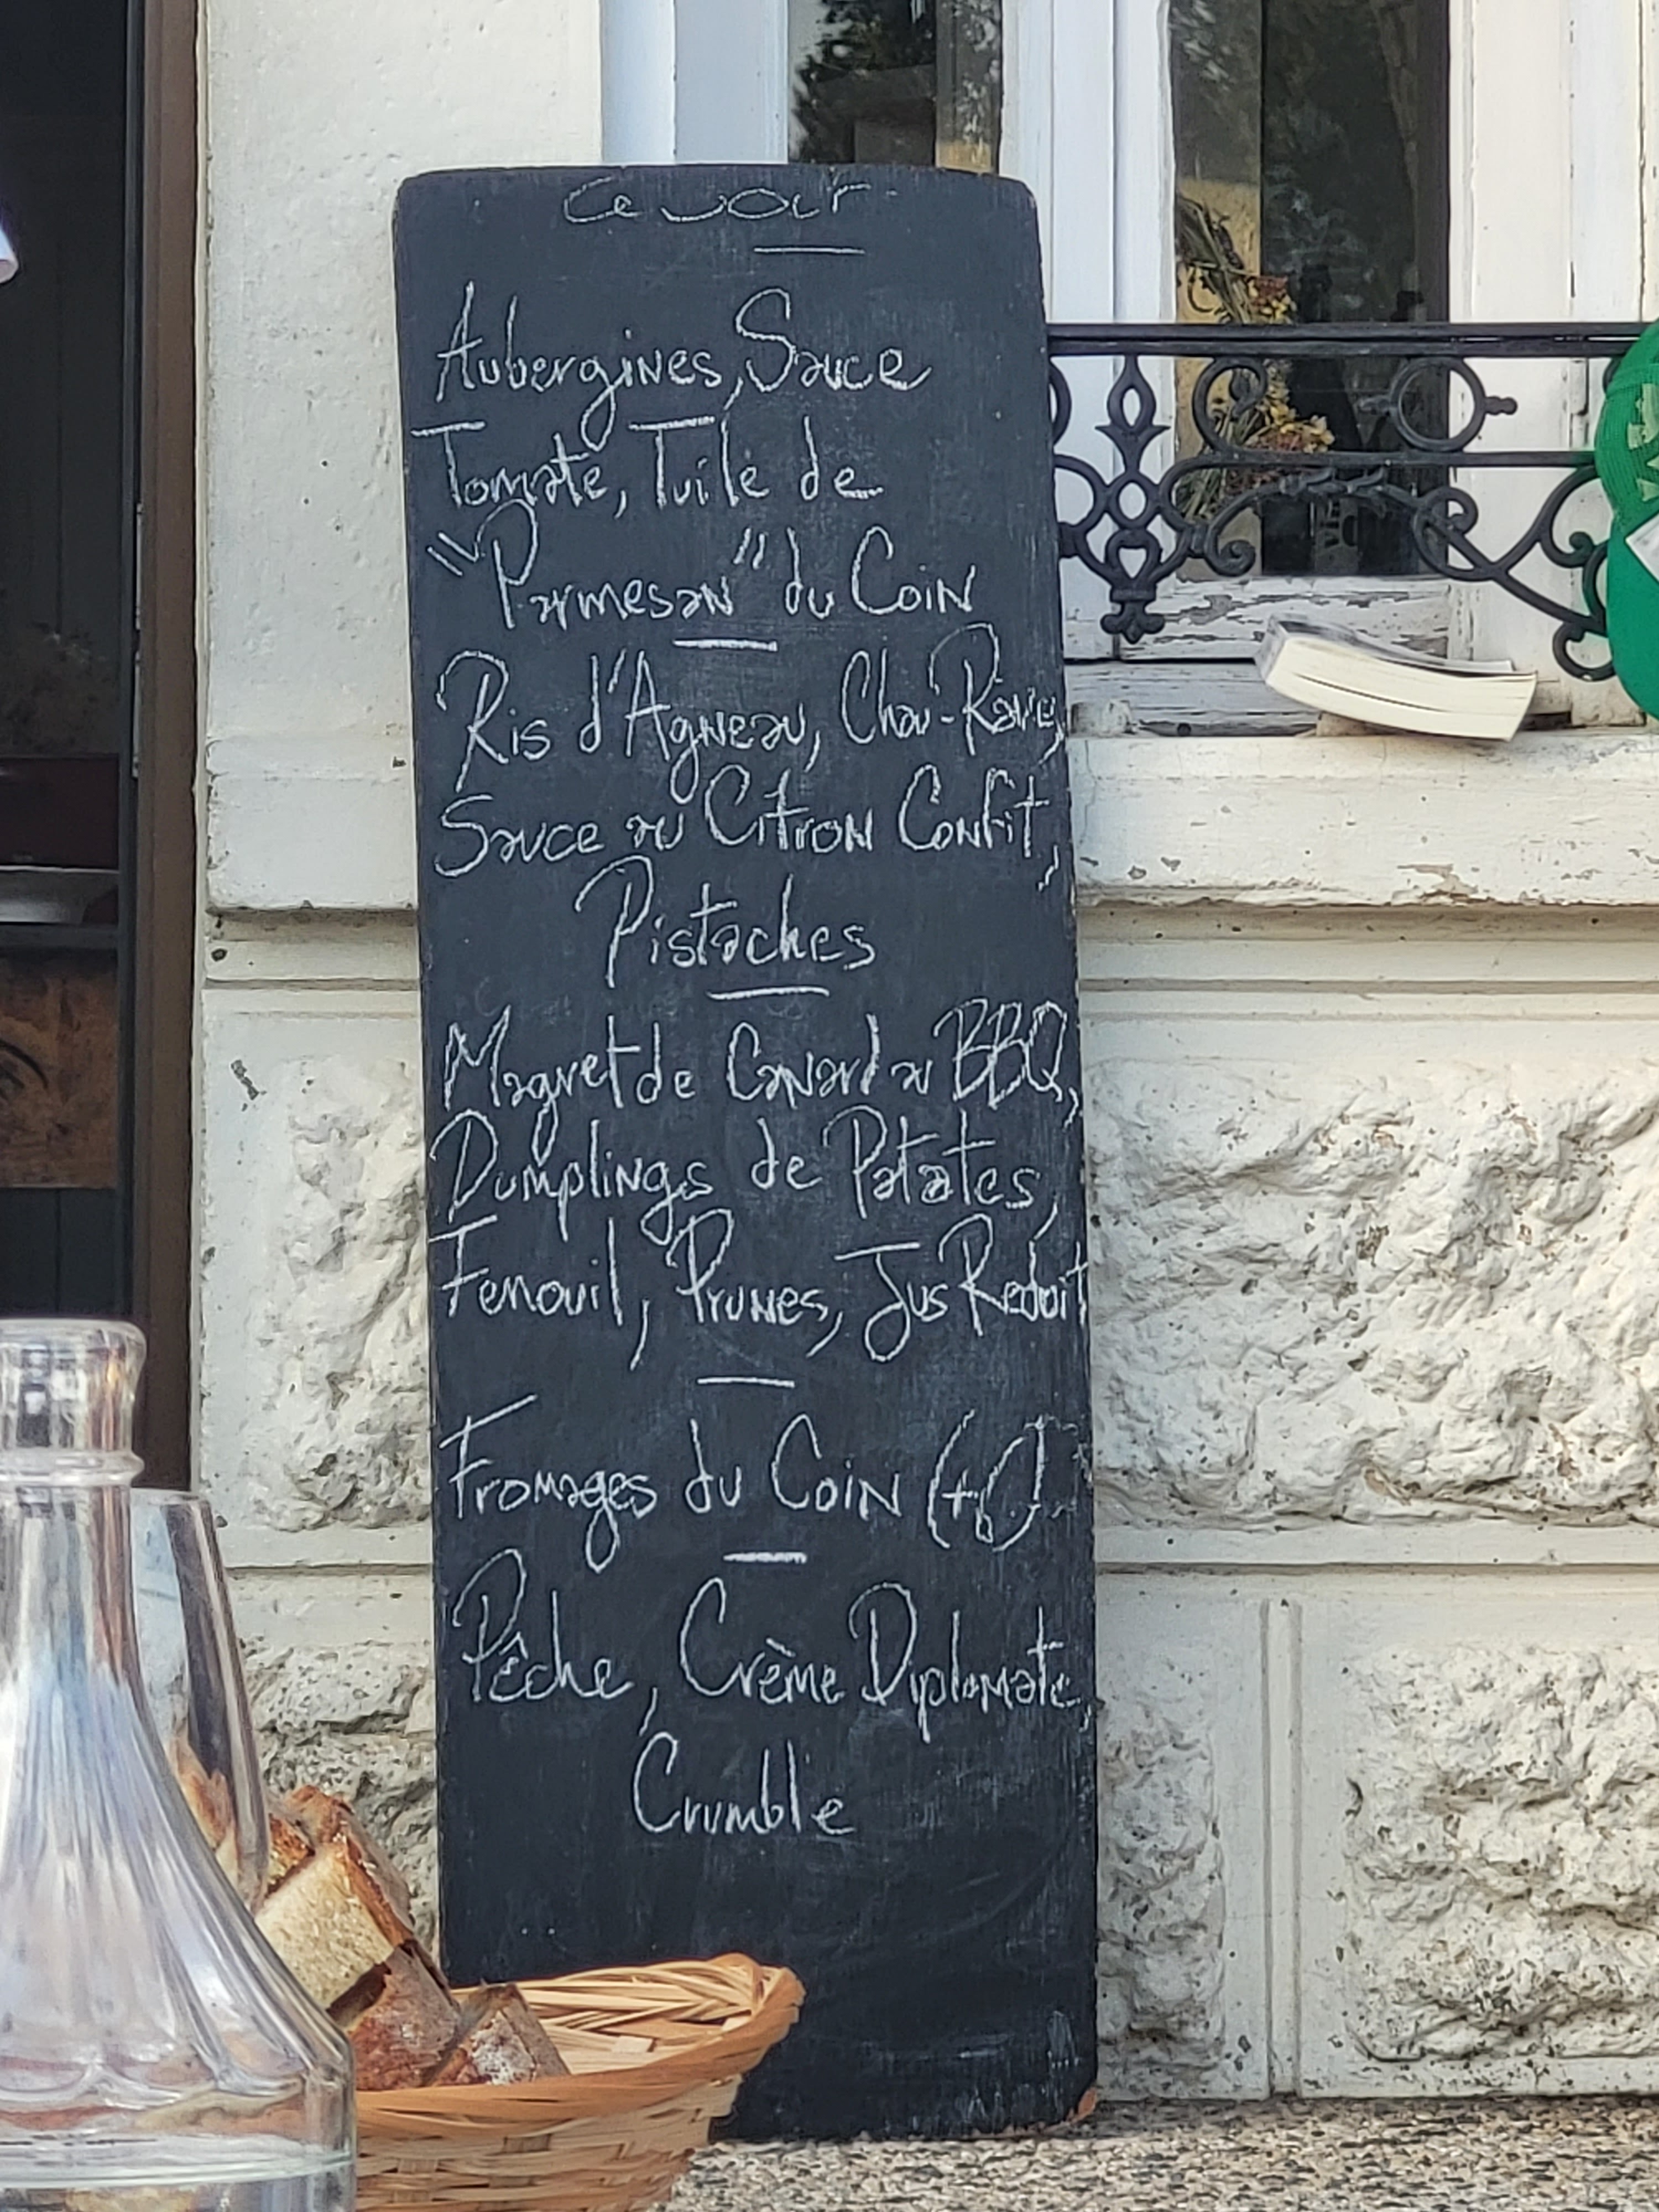 Ce soir
Aubergines, Sauce
Tomate, Tuile de
"Parmesan" du Coin
Ris d'Agneau, Chou-Rave,
Sauce au Citron Confit,
Pistaches
Magret de Canard au BBQ,
Dumplings de Patates,
Fenouil, Prunes, Jus Réduit
Fromages du Coin (+6)
Pêche, Crème Diplomate,
Crumble